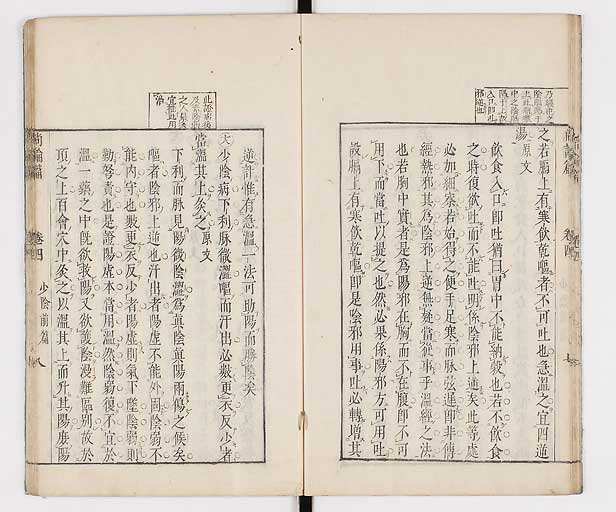 之若膈上有寒飲乾嘔者不可吐也急溫之宜四逆
湯 原文
飲食入口即吐猶曰胃中不能納穀也若不飲食
之時復欲吐而不能吐明係陰邪上逆矣此等處
必加細察若始得之便手足寒而脉弦遲即非傳
經熱邪其為陰邪上逆無疑當從事乎溫經之法
也若胸中實者是為陽邪在胸而不在腹即不可
用下而當吐以提之也然必果係陽邪方可用吐
設膈上有寒飲乾嘔即是陰邪用事吐必轉增其
逆計惟有急溫一法可助陽而勝陰矣
六少陰病下利脉微濇嘔而汗出必數更衣反少者
當溫其上灸之 原文
下利而脉見陽微陰濇為真陰真陽兩傷之候矣
嘔者陰邪上逆也汗出者陽虛不能外固陰弱不
能內守也數更衣反少者陽虛則氣下墜陰弱則
勤努責也是證陽虛本當用溫然陰弱復不宜於
溫一藥之中既欲救陽又欲護陰漫難區別故於
項之上百會穴中灸之以溫其上而升其陽庶陽
尚論篇
卷四
少陰前篇
八